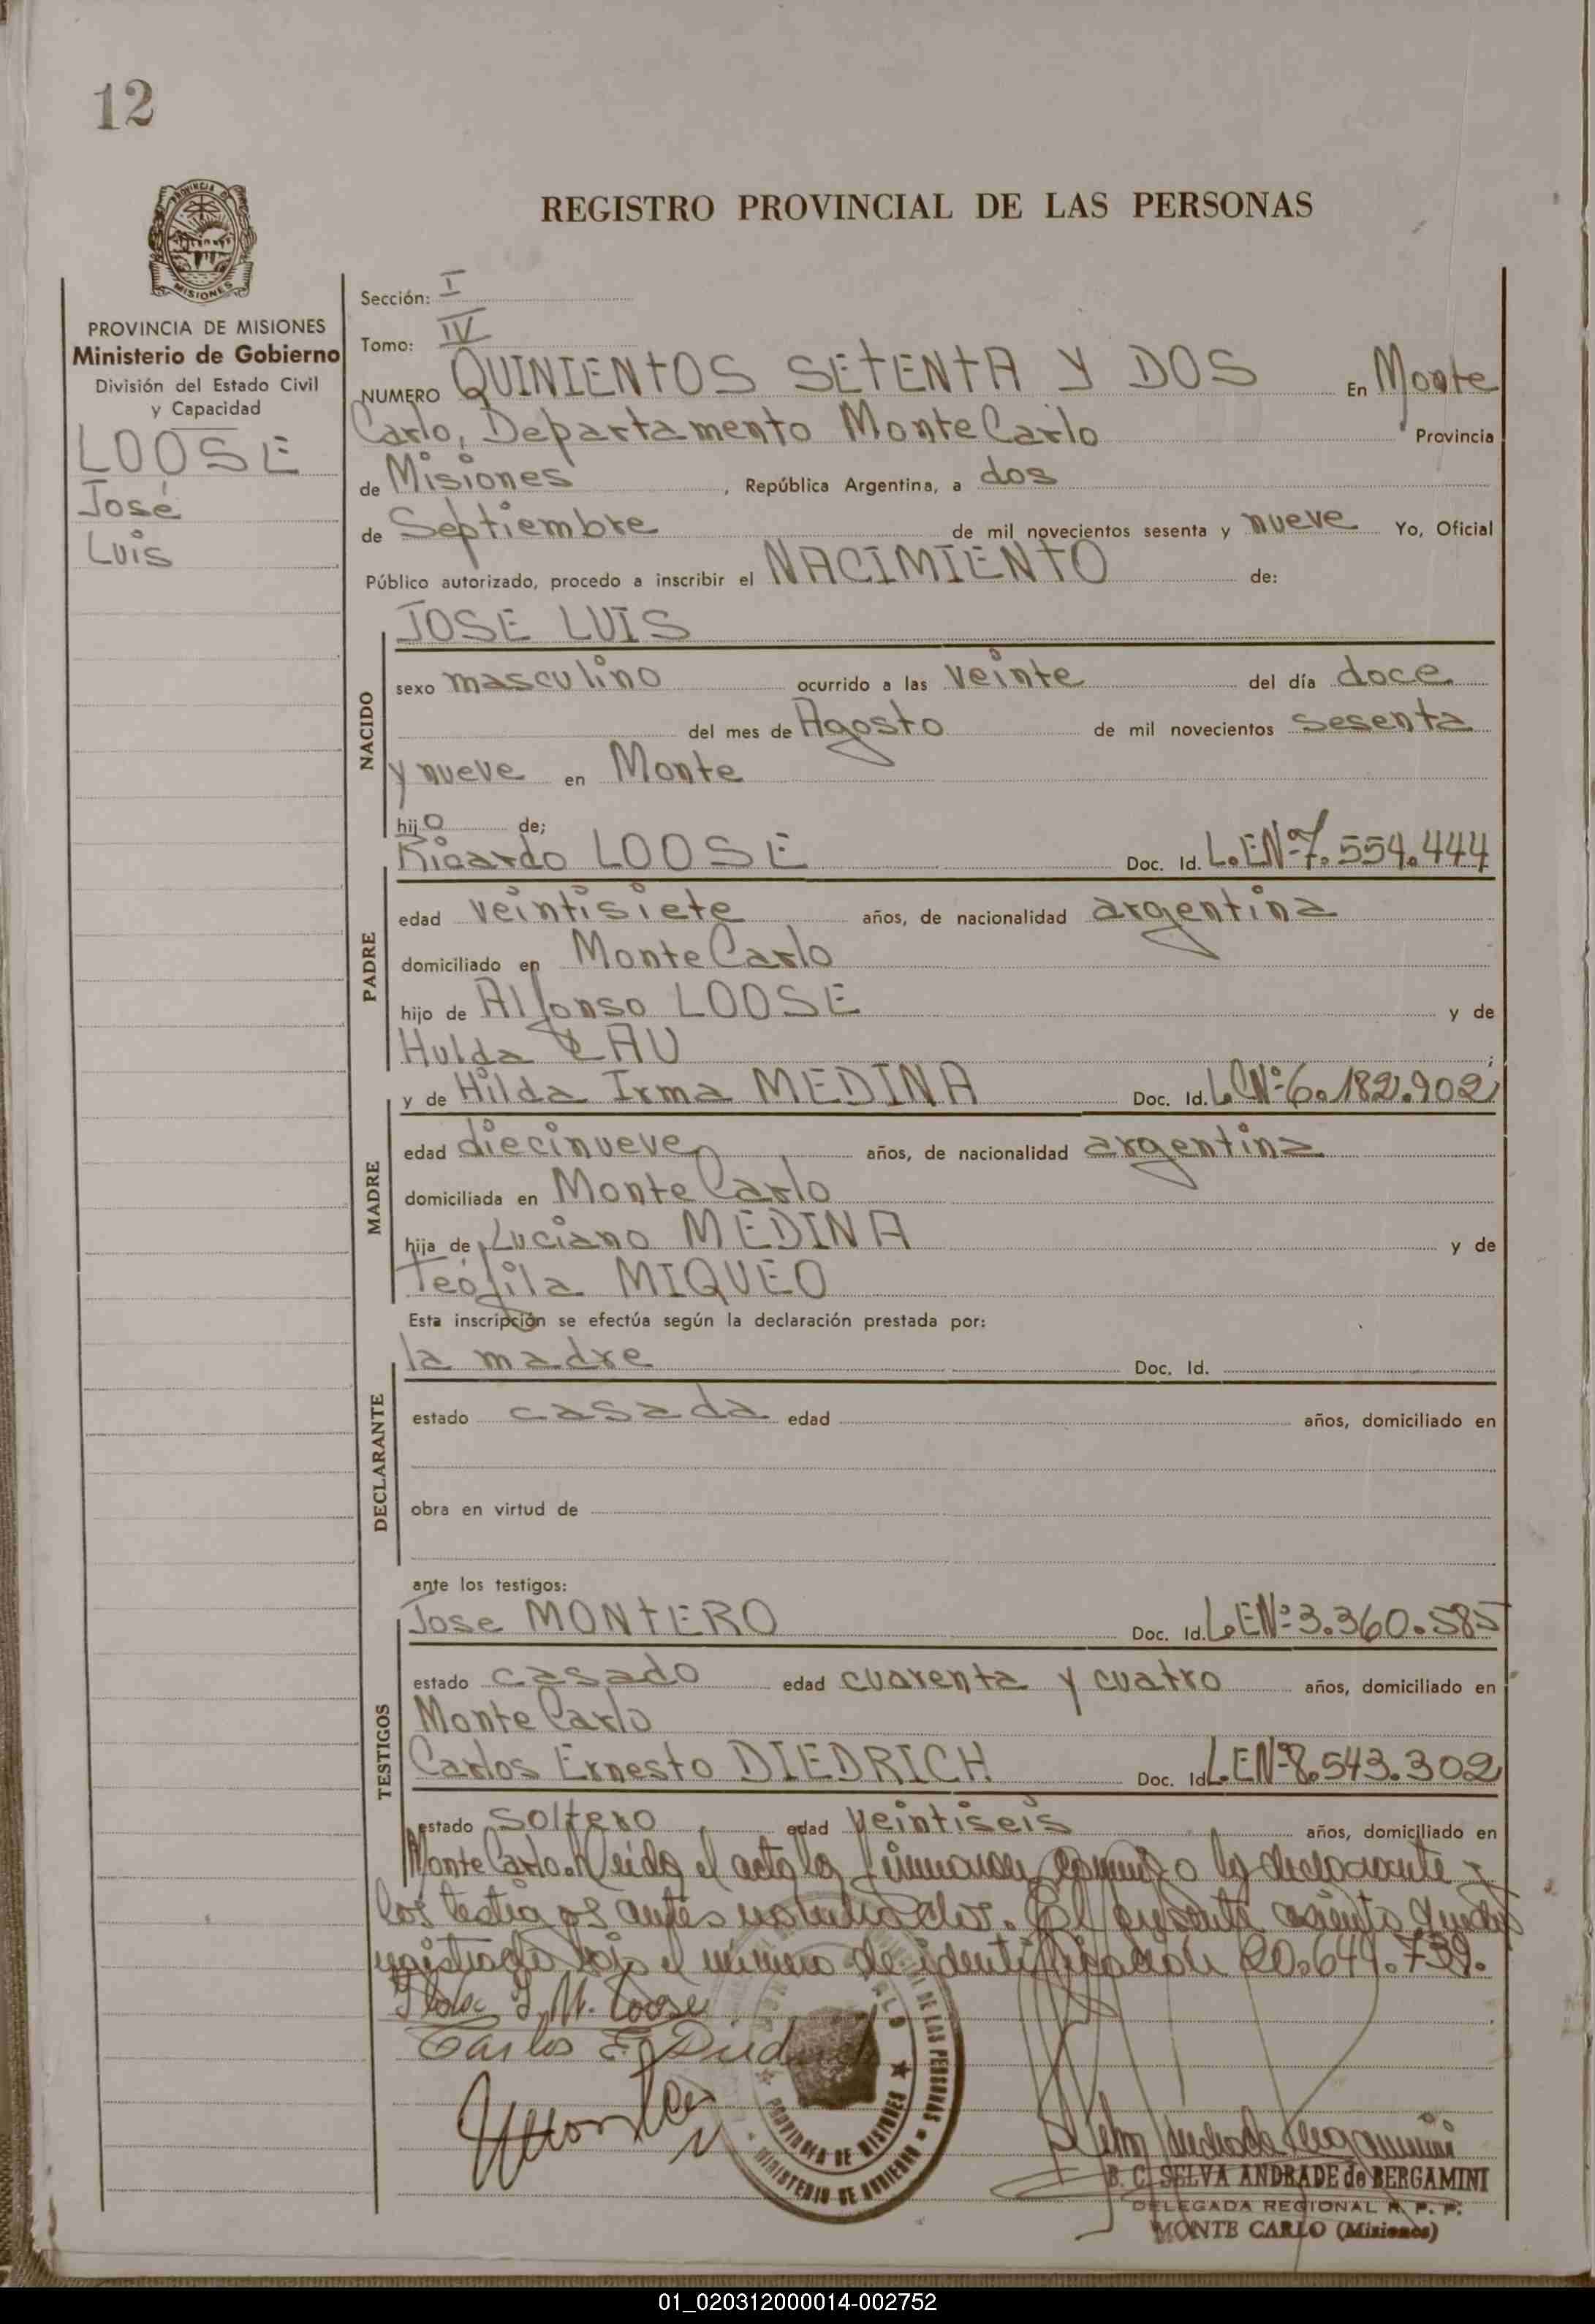 12
PROVINCIA DE
MISIONES
REGISTRO PROVINCIAL DE LAS PERSONAS
PROVINCIA DE MISIONES
Ministerio de Gobierno
División del Estado Civil
y Capacidad
LOOSE
José
Luis
Sección: I
Tomo: IV
NUMERO QUINIENTOS SETENTA Y DOS En Monte
Carlo, Departamento Monte Carlo Provincia
de Misiones, República Argentina, a dos
de Septiembre de mil novecientos sesenta y nueve Yo, Oficial
Público autorizado, procedo a inscribir el NACIMIENTO de:
NACIDO
JOSE LUIS
sexo masculino ocurrido a las veinte del día doce
del mes de Agosto de mil novecientos sesenta
y nueve en Monte
hijo de;
PADRE
Ricardo LOOSE Doc. Id. L.E.Nº 7.554.444
edad veintisiete años, de nacionalidad argentina
domiciliado en Monte Carlo
hijo de Alfonso LOOSE y de
Hulda LAU;
MADRE
y de Hilda Irma MEDINA Doc. Id. L.C.Nº 6.182.902
edad diecinueve años, de nacionalidad argentina
domiciliada en Monte Carlo
hija de Luciano MEDINA y de
Teófila MIQUEO
Esta inscripción se efectúa según la declaración prestada por:
DECLARANTE
la madre Doc. Id.
estado casada edad años, domiciliado en
obra en virtud de
ante los testigos:
TESTIGOS
Jose MONTERO Doc. Id. L.E.Nº 3.360.585
estado casado edad cuarenta y cuatro años, domiciliado en
Monte Carlo
Carlos Ernesto DIEDRICH Doc. Id. L.E.Nº 8.543.302
estado soltero edad veintiseis años, domiciliado en
Monte Carlo. Leida el acta la firmaron conmigo la declarante y
los testigos antes nombrados. El presente asiento queda
registrado bajo el número de identificación 20.649.739.
I. M. Loose
Carlos E.
DE LAS PERSONAS
PROVINCIA DE MISIONES
MINISTERIO DE GOBIERNO
Selva Andrade Bergamini
B. C. SELVA ANDRADE de BERGAMINI
DELEGADA REGIONAL R. P. P.
MONTE CARLO (Misiones)
01_020312000014-002752